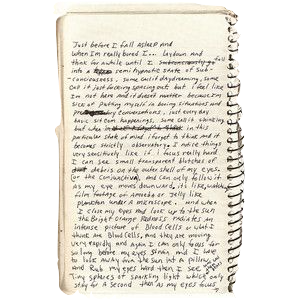 Just before I fall asleep and
when Im really bored I... laydown and
think for awhile until I subconsciously go fall
into a semi hypnotic state of sub-
consciousness, some call it daydreaming, some
call it just fucking spacing out but i feel like
Im not here and it doesnt matter because Im
sick of putting myself in boring situations and
conversations, just every day
basic sitcom happenings, some call it thinking
but when in this
particular state of mind i forget to think and it
becomes strictly observatory. I notice things
very sensitively like if i focus really hard
I can see small transparent blotches of
debris on the outer shell of my eyes.
(or the conjunctiva). and can only follow it
as my eye moves downward, its like watching
film footage of amoeba or Jelly like
plankton under a microscope. and when
I close my eyes and look up to the sun
the Bright orange Redness radiates an
intense picture of Blood cells or what I
think are Blood cells, and they are moving
very rapidly and again I can only focus for
so long before my eyes strain and I have
to look away from the sun into a pillow
and Rub my eyes hard then I see
Tiny spheres of sparkling light which only
stay for a second then as my eyes focus